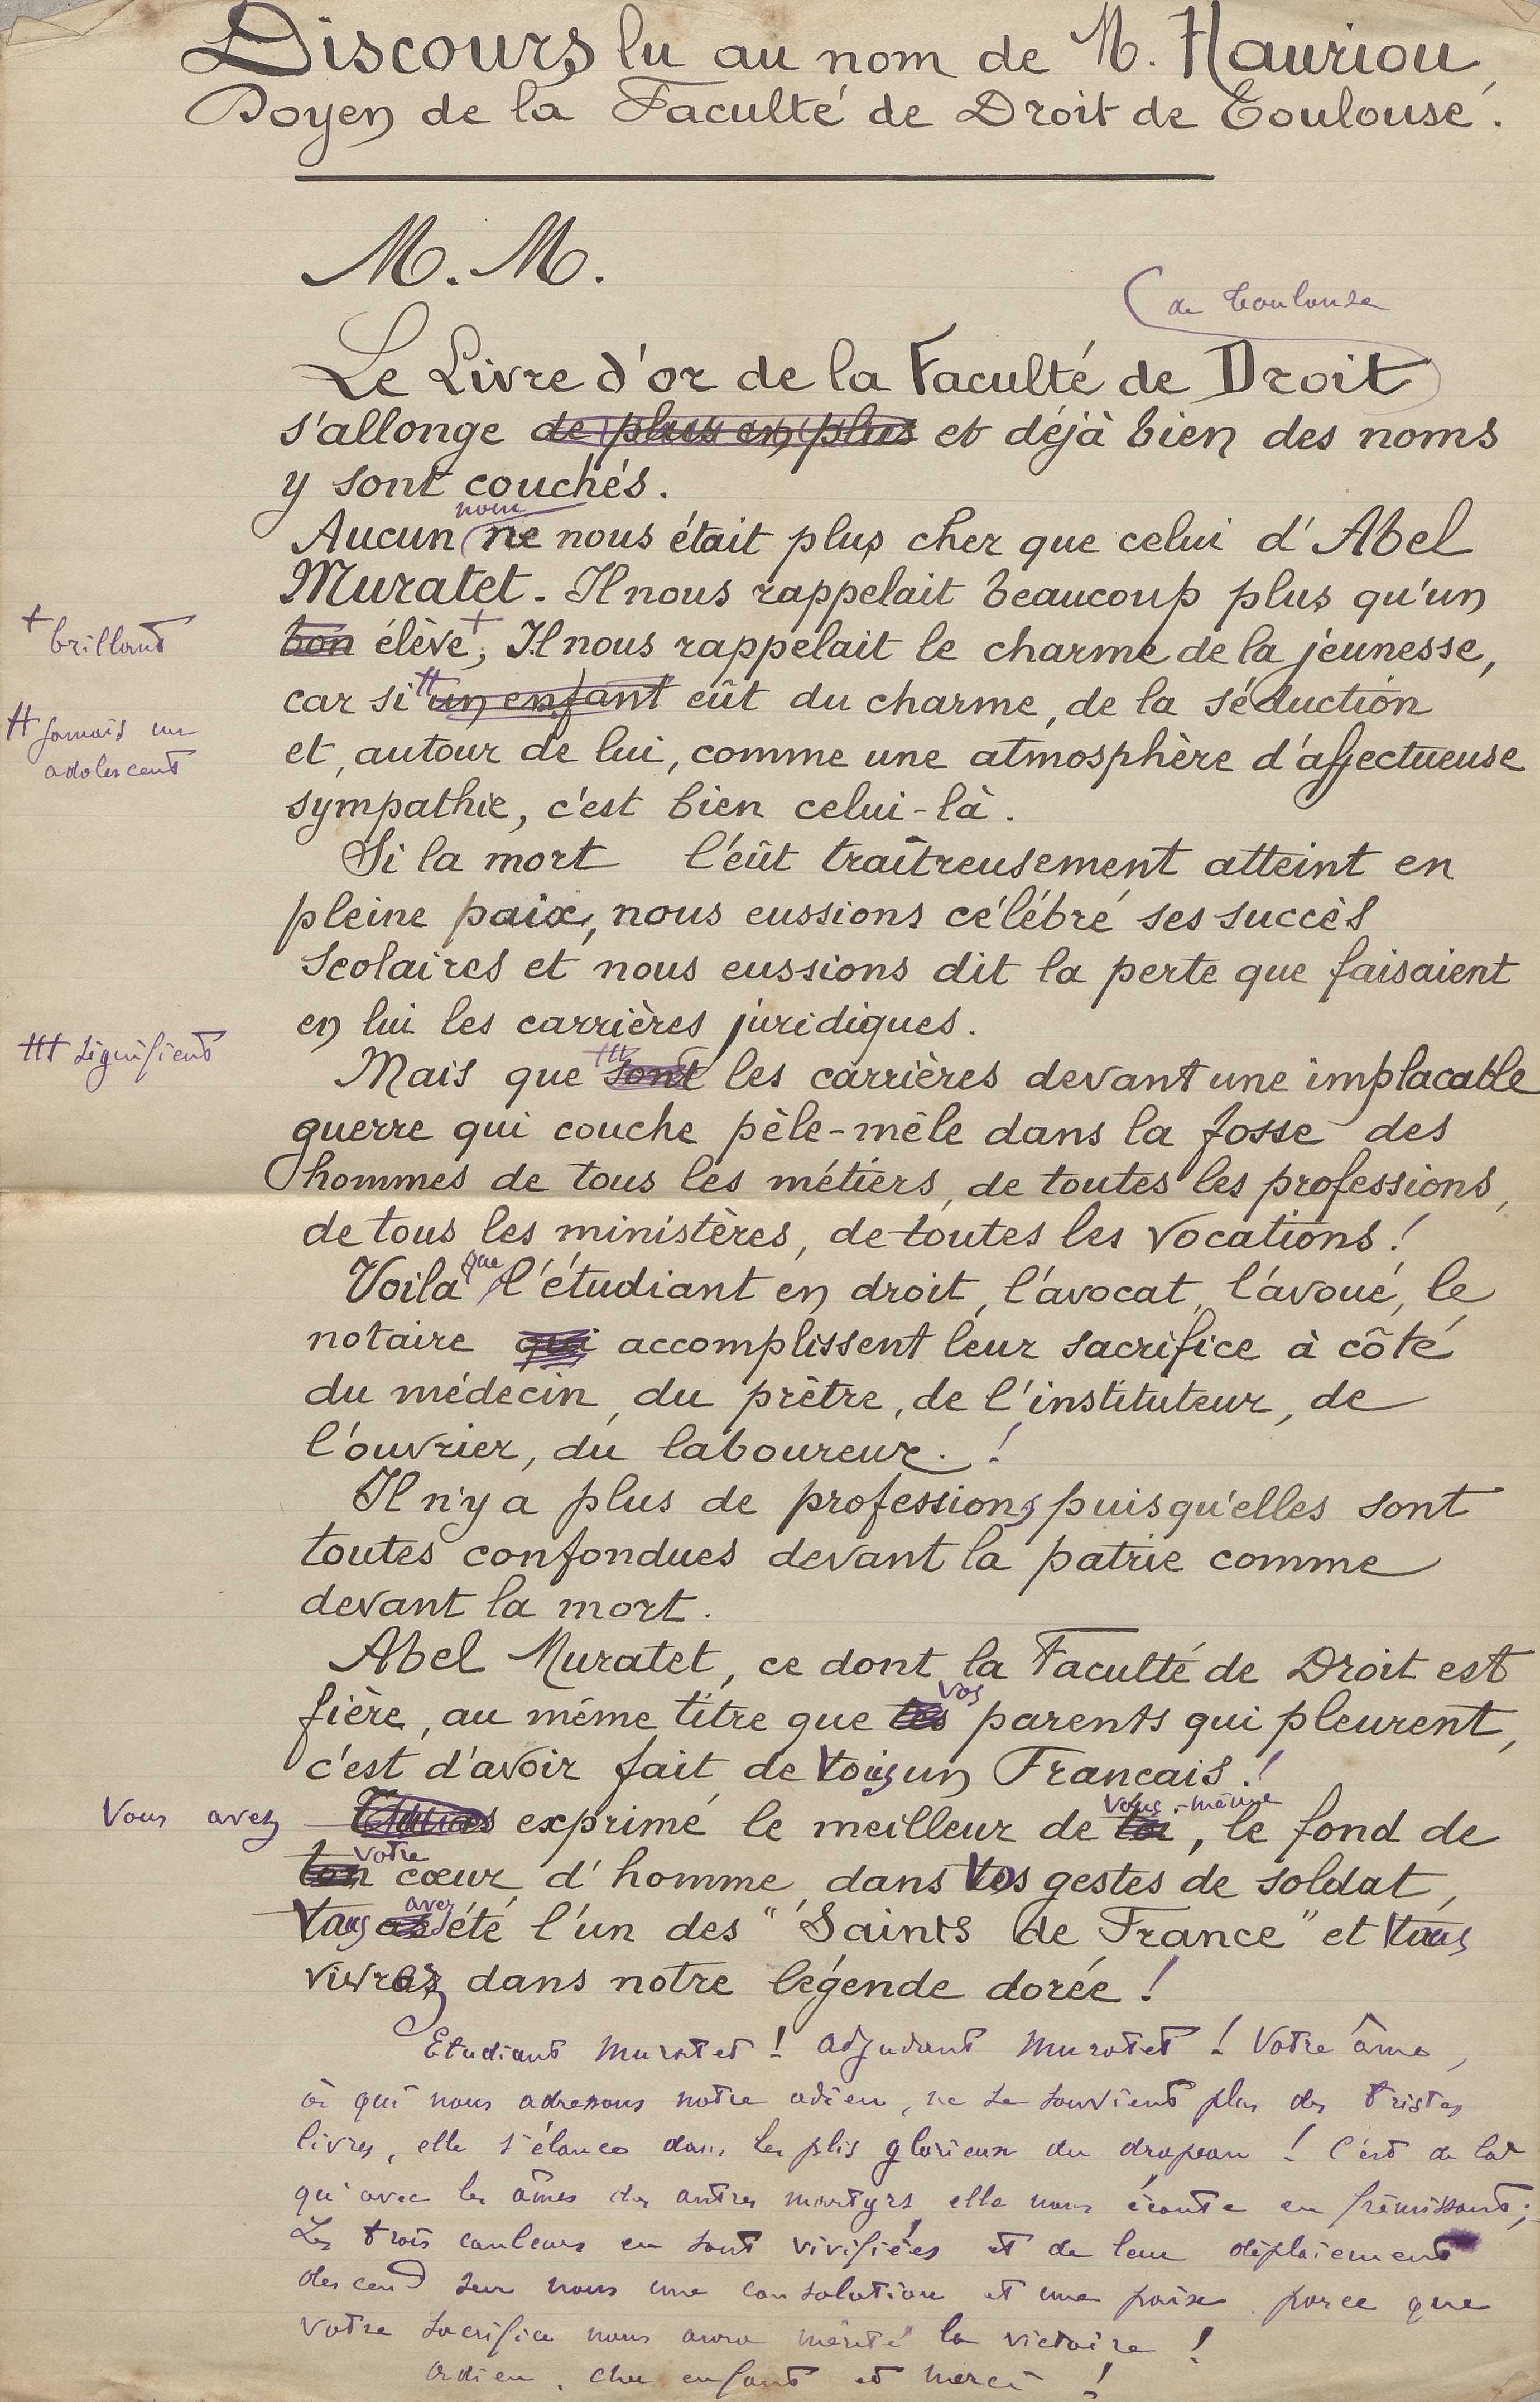 Discours lu au nom de M. Hauriou,
Doyen de la Faculté de Droit de Toulouse.
M. M.
de Toulouse
Le Livre d'or de la Faculté de Droit
s'allonge de plus en plus et déjà bien des noms
y sont couchés.
nom
Aucun ne nous était plus cher que celui d'Abel
Muratet. Il nous rappelait beaucoup plus qu'un
+ brillant
bon élève +, Il nous rappelait le charme de la jeunesse,
car si ++ un enfant eût du charme, de la séduction
++ jamais un
adolescent
et, autour de lui, comme une atmosphère d'affectueuse
sympathie, c'est bien celui-là.
Si la mort l'eût traîtreusement atteint en
pleine paix, nous eussions célébré ses succès
scolaires et nous eussions dit la perte que faisaient
en lui les carrières juridiques.
+++ signifient
Mais que +++ sont les carrières devant une implacable
guerre qui couche pèle-mêle dans la fosse des
hommes de tous les métiers, de toutes les professions,
de tous les ministères, de toutes les vocations !
que
Voilà l'étudiant en droit, l'avocat, l'avoué, le
notaire qui accomplissent leur sacrifice à côté
du médecin, du prêtre, de l'instituteur, de
l'ouvrier, du laboureur. !
Il n'y a plus de professions puisqu'elles sont
toutes confondues devant la patrie comme
devant la mort.
Abel Muratet, ce dont la Faculté de Droit est
vos
fière, au même titre que tes parents qui pleurent,
c'est d'avoir fait de vous un Francais. !
vous-même
Vous avez Tu as exprimé le meilleur de toi, le fond de
votre
ton cœur d'homme, dans vos gestes de soldat,
avez
Vous as été l'un des "Saints de France" et vous
vivrez dans notre légende dorée !
Etudiant Muratet ! Adjudant Muratet ! Votre âme,
à qui nous adressons notre adieu, ne se souvient plus des tristes
livres, elle s'élance dans les plis glorieux du drapeau ! C'est de là
qu'avec les âmes des autres martyrs elle nous écoute en frémissant ;
Les trois couleurs en sont vivifiées et de leur déploiement
descend sur nous une consolation et une paix parce que
votre sacrifice nous aura mérité la victoire !
Adieu, cher enfant et merci !